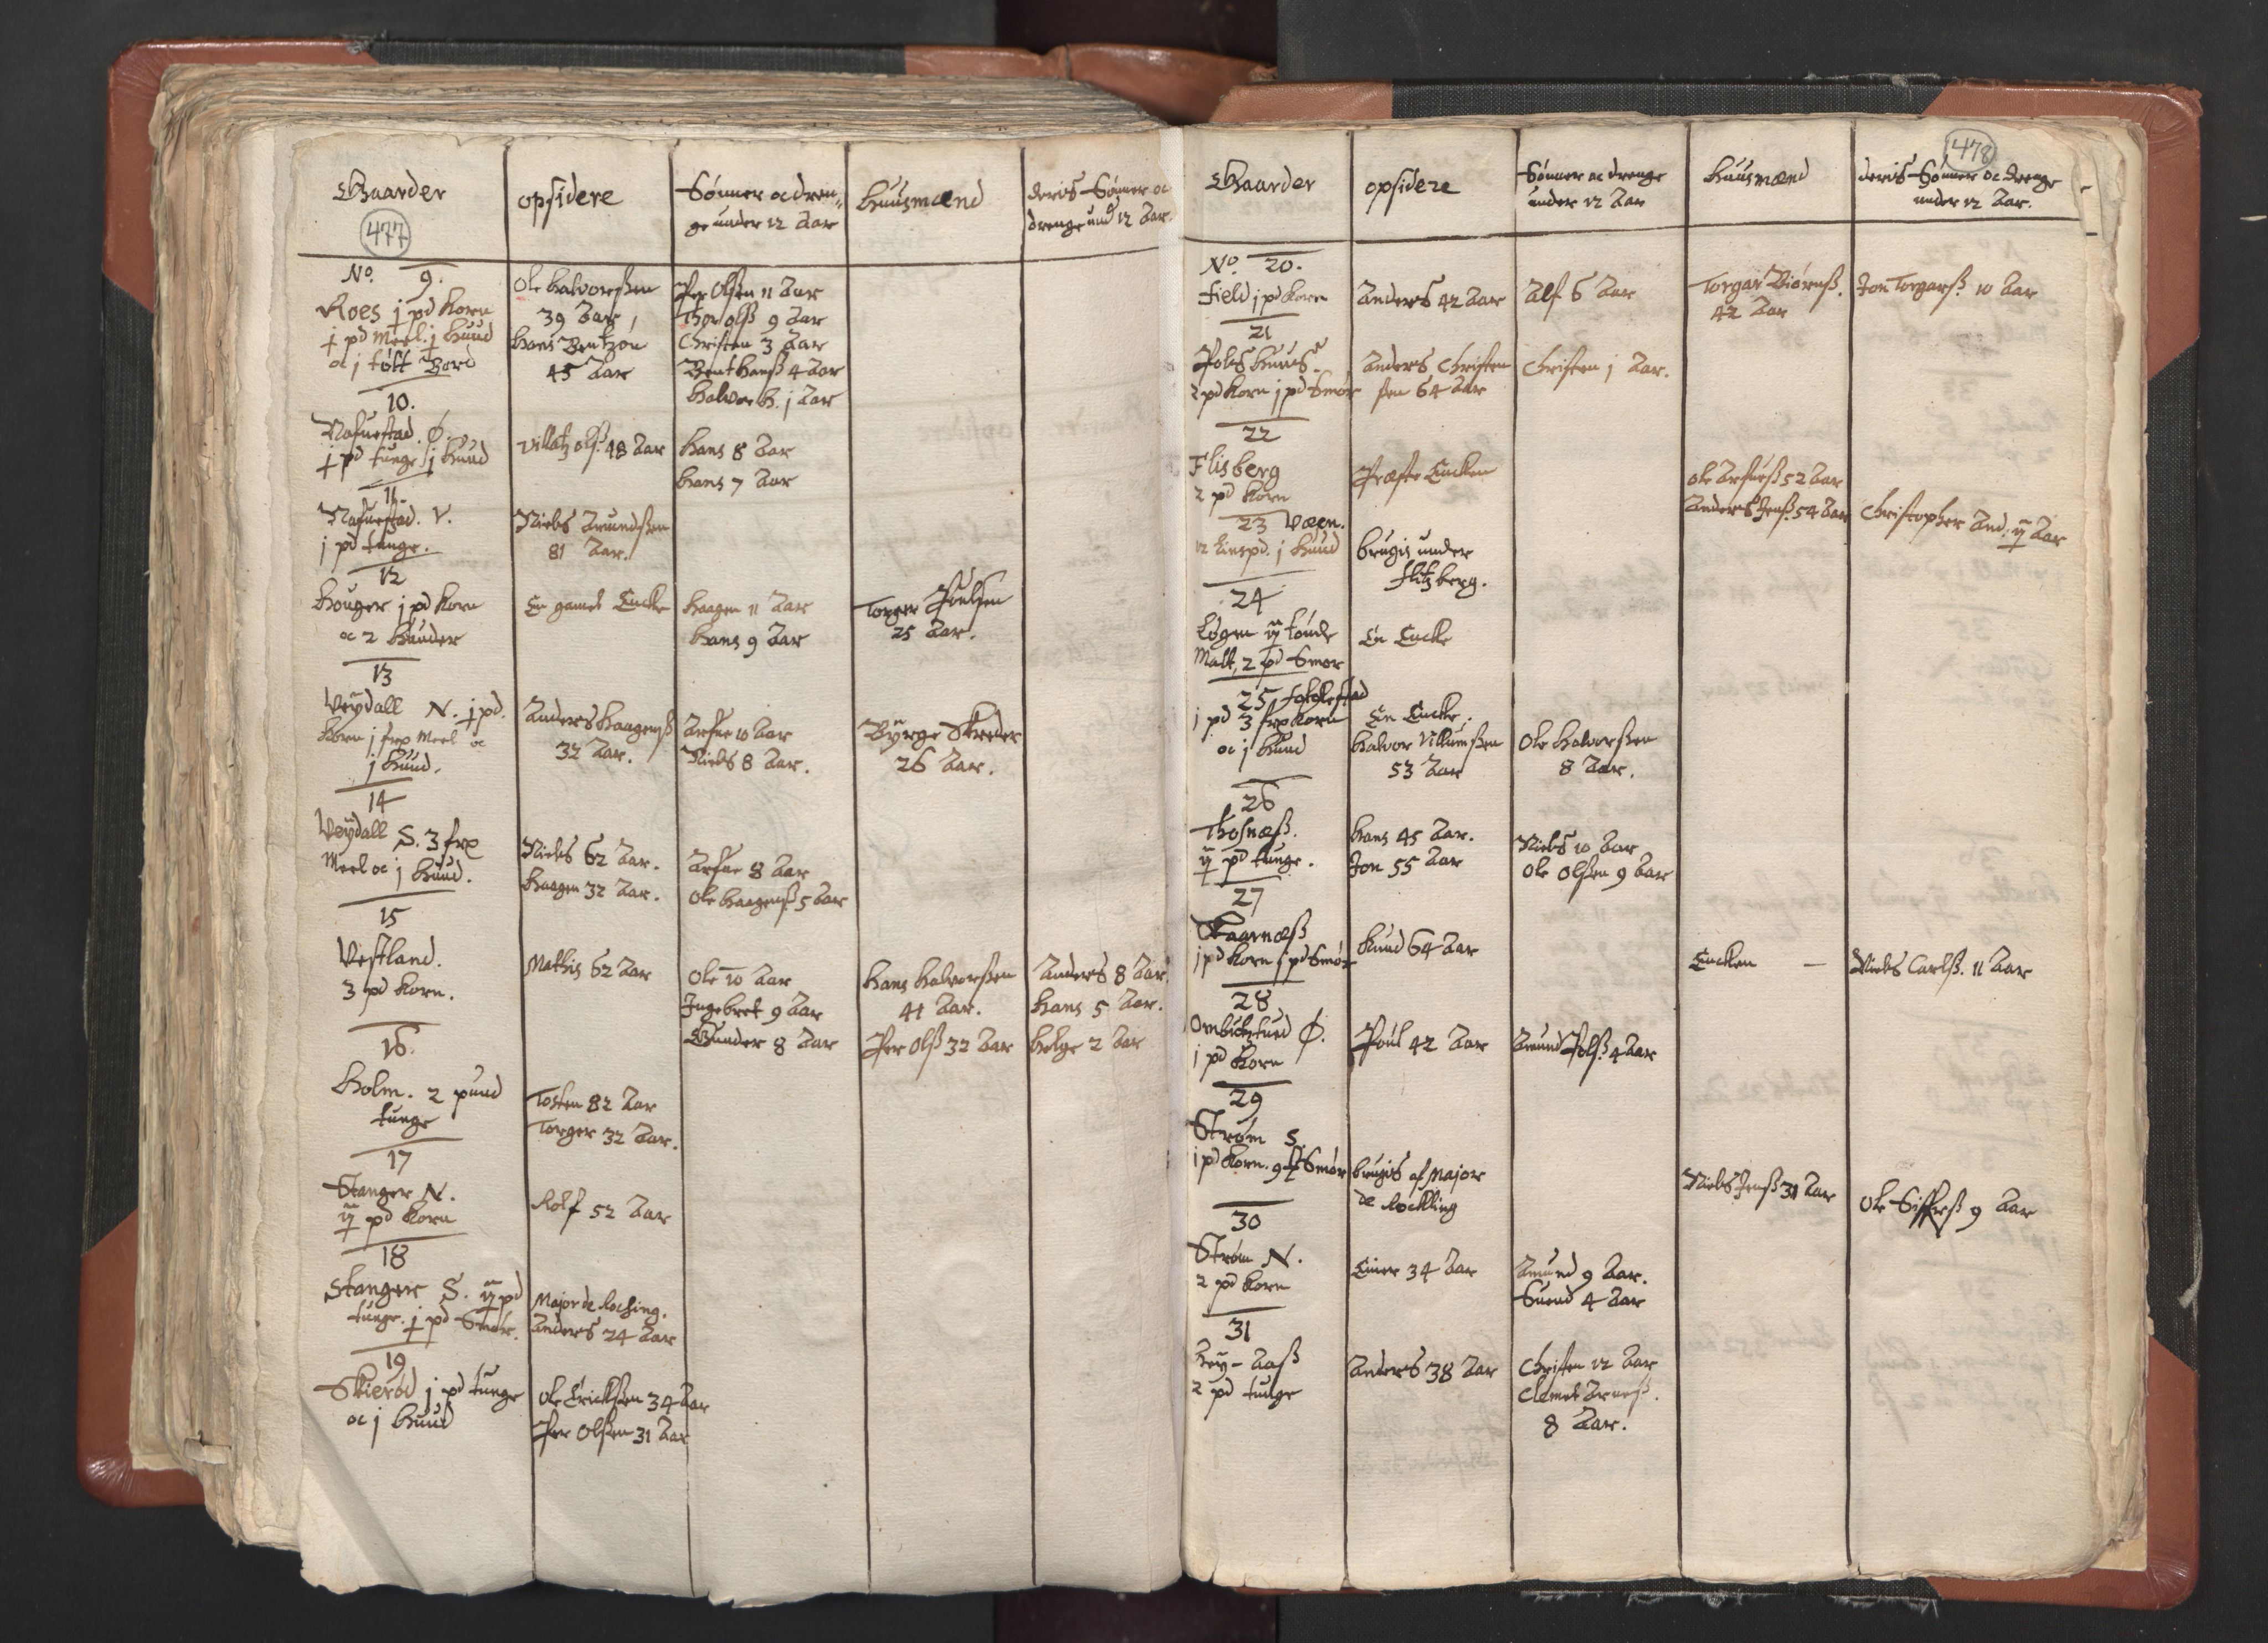 Gaarder
opsidere
Sønner oc dren-
ge under 12 Aar
Huusmænd
deris Sønner oc
drenge und 12 Aar
477
No. 9.
Roes j pd Korn
j pd Meel. j Huud
oc j tølt Bord
Ole Halvorßen
39 Aar,
Hans Bentzøn
45 Aar
Per Olßen 11 Aar
Thor Olß 9 Aar
Christen 3 Aar
Bent Hanß 4 Aar
Halvor H. j Aar
10.
Nafuestad. Ø.
j pd tunge j Huud
Villatz Olß. 48 Aar
Hans 8 Aar
Hans 7 Aar
11.
Nafuestad. V.
j pd tunge.
Niels Amundßen
81 Aar.
12
Houger j pd Korn
oc 2 Huuder
En gamel Encke
Haagen 11 Aar
Hans 9 Aar
Torger Poulsen
25 Aar.
13
Veydall N. j pd.
Korn j frp Meel oc
j Huud.
Anders Haagenß
32 Aar.
Arfue 10 Aar
Niels 8 Aar.
Byrge Skreder
26 Aar.
14
Veydall S. 3 frp
Meel oc j Huud.
Niels 62 Aar.
Haagen 32 Aar.
Arfue 8 Aar
Ole Haagenß 5 Aar
15
Vestland.
3 pd Korn.
Mathis 62 Aar
Ole 10 Aar
Ingebret 9 Aar
Gunder 8 Aar
Hans Halvorßen
41 Aar.
Per Olß 32 Aar
Anders 8 Aar.
Hans 5 Aar.
Helge 2 Aar
16.
Holm. 2 pund
tunge
Tosten 82 Aar
Torger 32 Aar.
17
Stanger N.
ij pd Korn
Rolf 52 Aar
18
Stanger S. ij pd
tunge. j pd Smør.
Major de Rocling.
Anders 24 Aar
19
Skierød j pd tunge
oc j Huud
Ole Erickßen 34 Aar
Per Olßen 31 Aar
478
Gaarder
opsidere
Sønner oc drenge
under 12 Aar
Huusmænd
deris Sønner oc drenge
under 12 Aar.
No. 20.
Field j pd Korn
Anders 42 Aar
Alf 6 Aar
Torgar Biørnß.
42 Aar
Jon Torgarß. 10 Aar
21
Poels Huus
2 pd Korn j pd Smør
Anders Christen
ßen 64 Aar
Christen j Aar.
22
Flisberg
2 pd Korn
Præste Encken
Ole Arfueß 52 Aar
Anders Jenß. 54 Aar
Christopher And. ij Aar
23 Væen.
12 Lispd. j Huud
brugis under
flitzberg.
24
Løgen ij tønde
Malt, 2 pd Smør
En Encke
25 Folckestad
j pd 3 frp Korn
oc j Huud
En Encke.
Halvor Villumßen
53 Aar
Ole Halvorßen
8 Aar.
26
Thosnæß.
ij pd tunge.
Hans 45 Aar.
Jon 55 Aar
Niels 10 Aar
Ole Olßen 9 Aar
27
Skaarnæß
j pd Korn j pd Smør
Knud 64 Aar
Encken -
Niels Carlß. 11 Aar
28
Ombudtztued Ø.
j pd Korn
Poul 42 Aar
Amund Polß. 4 Aar
29
Strøm S.
j pd Korn. 9 Smør
brugis af Major
de Rockling
Niels Jenß 31 Aar
Ole Siffreß 9 Aar
30
Strøm N.
2 pd Korn
Einer 34 Aar
Amund 9 Aar.
Suend 4 Aar
31
Hey-Aaß
2 pd tunge
Anders 38 Aar
Christen 12 Aar
Clemet Arneß.
8 Aar.